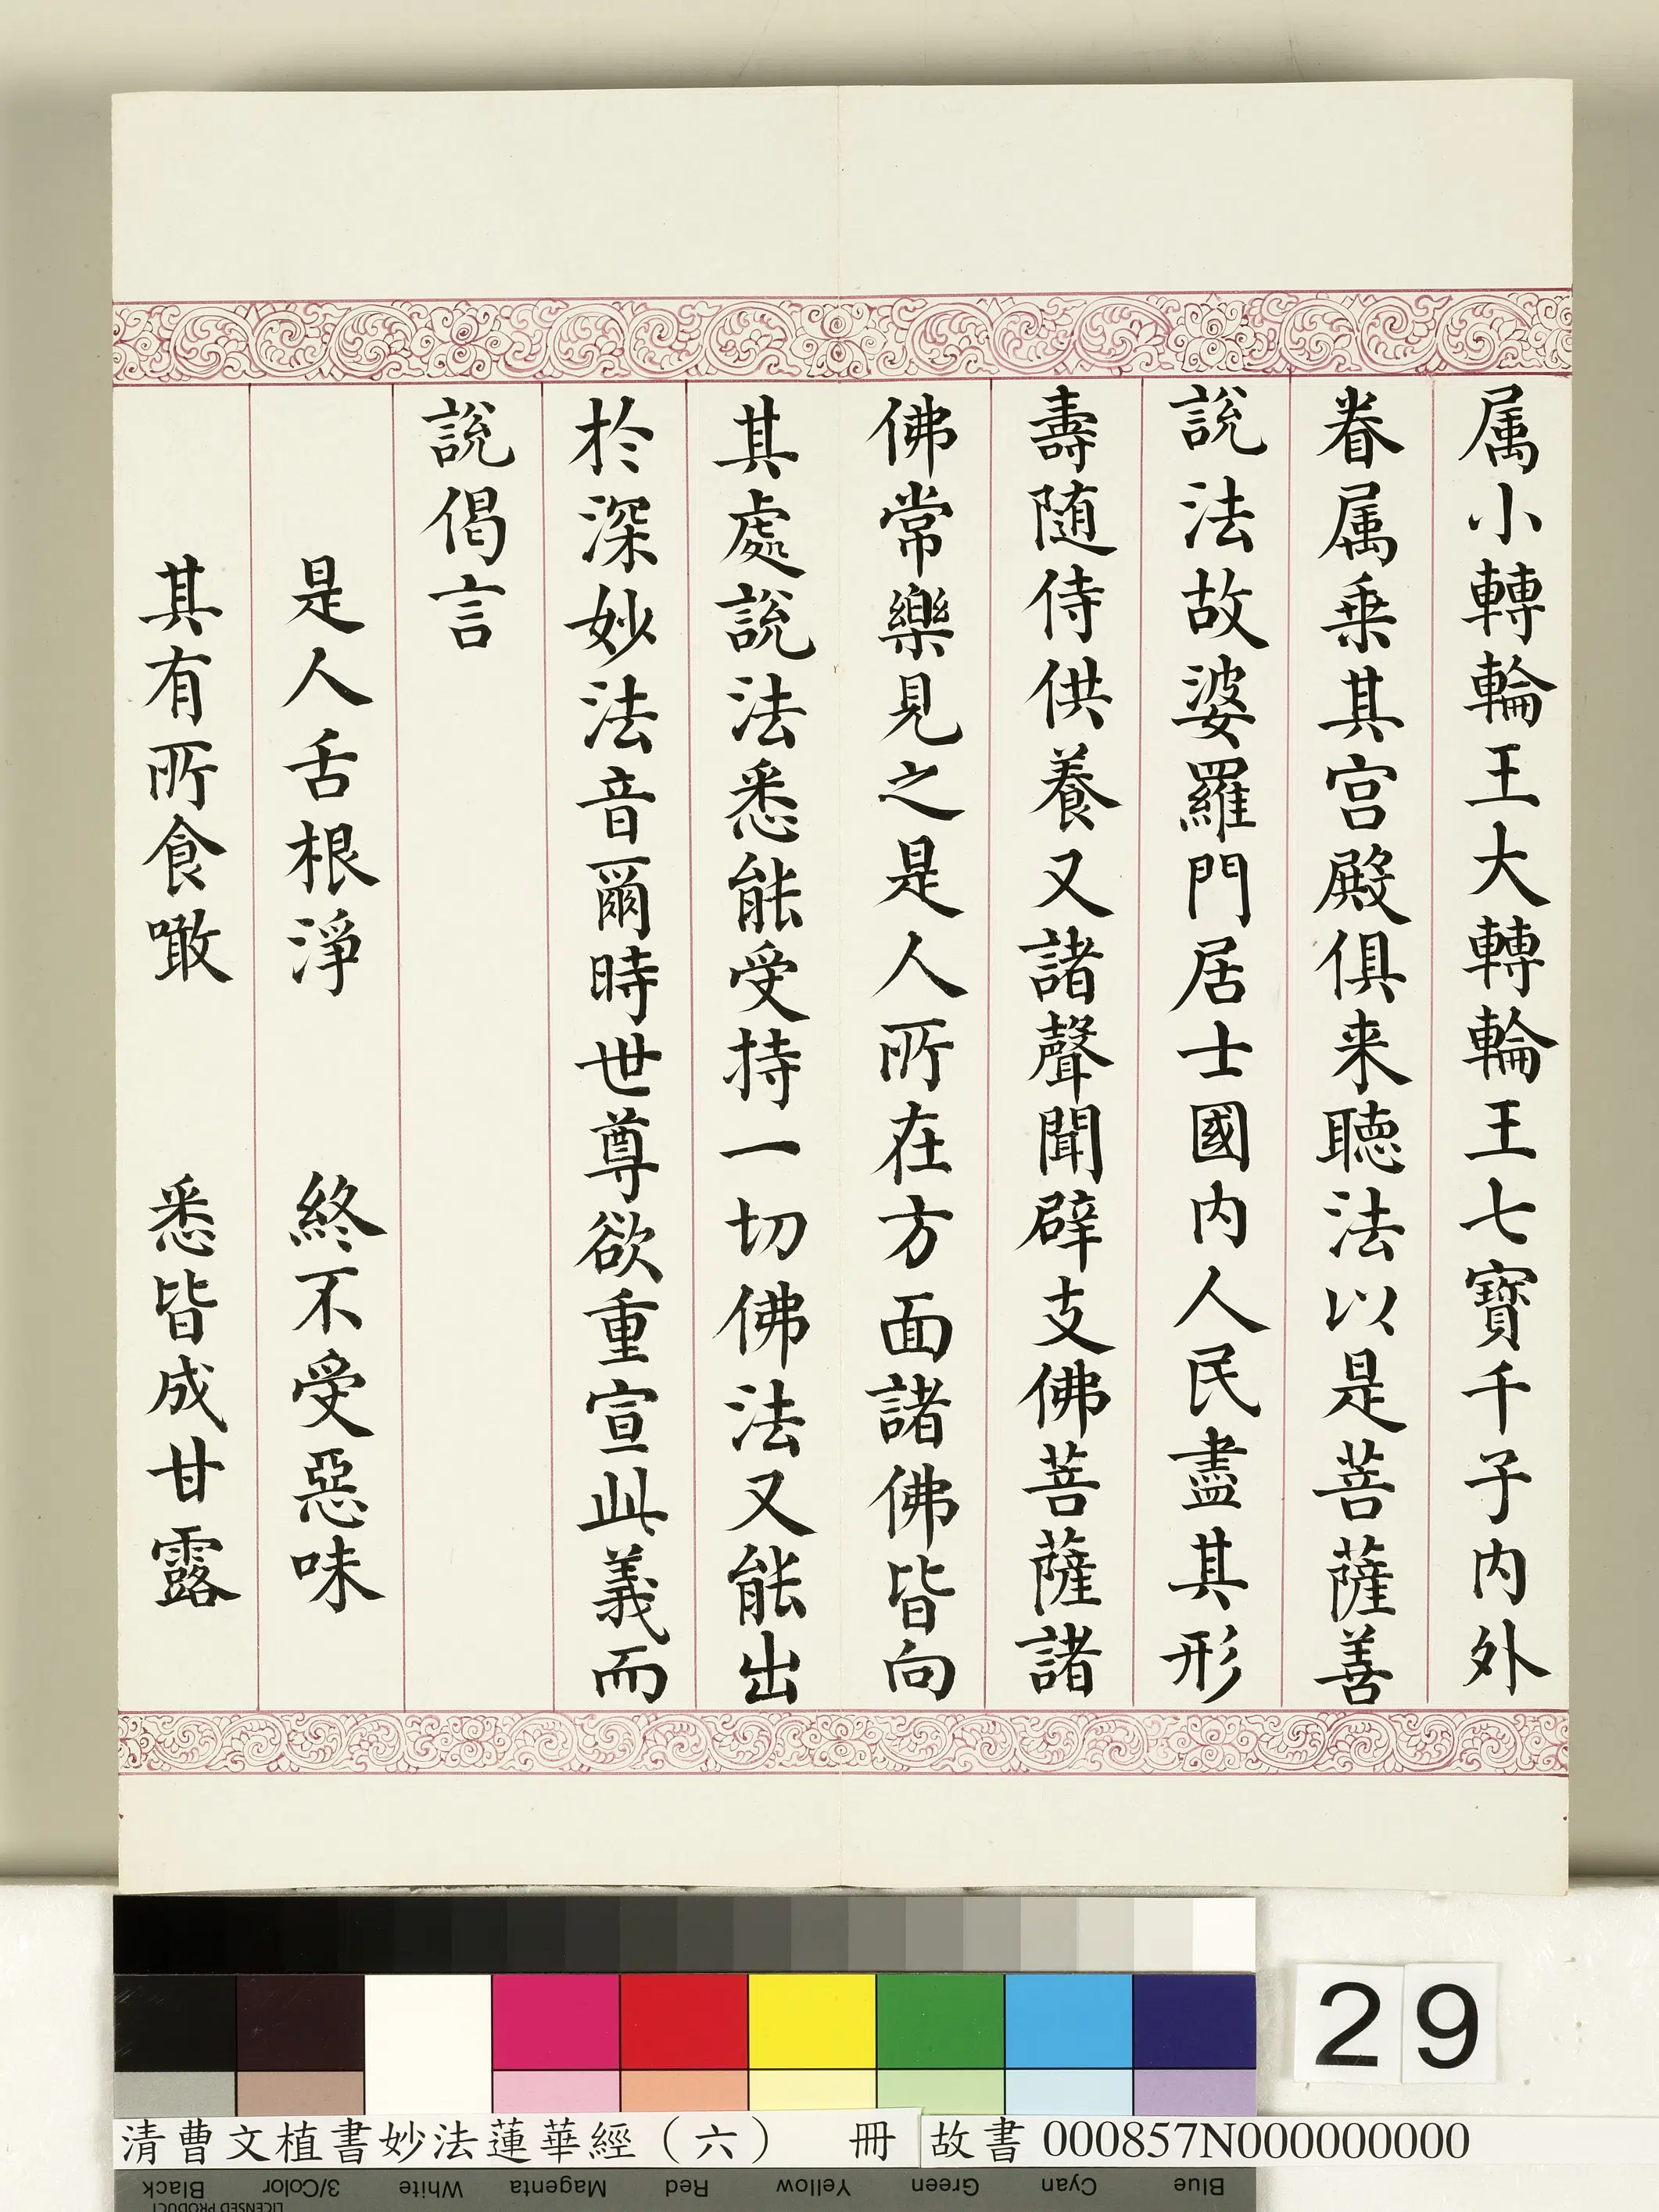 属小轉輪王大轉輪王七寶千子内外
眷属乗其宫殿俱来聴法以是菩薩善
説法故婆羅門居士國内人民盡其形
壽随侍供養又諸聲聞辟支佛菩薩諸
佛常樂見之是人所在方面諸佛皆向
其處説法悉能受持一切佛法又能出
於深妙法音爾時世尊欲重宣此義而
説偈言
是人舌根淨　終不受惡味
其有所食噉　悉皆成甘露
29
清曹文植書妙法蓮華經（六）　冊　故書 000857N000000000
Black 3/Color White Magenta Red Yellow Green Cyan Blue
LICENSED PRODUCT